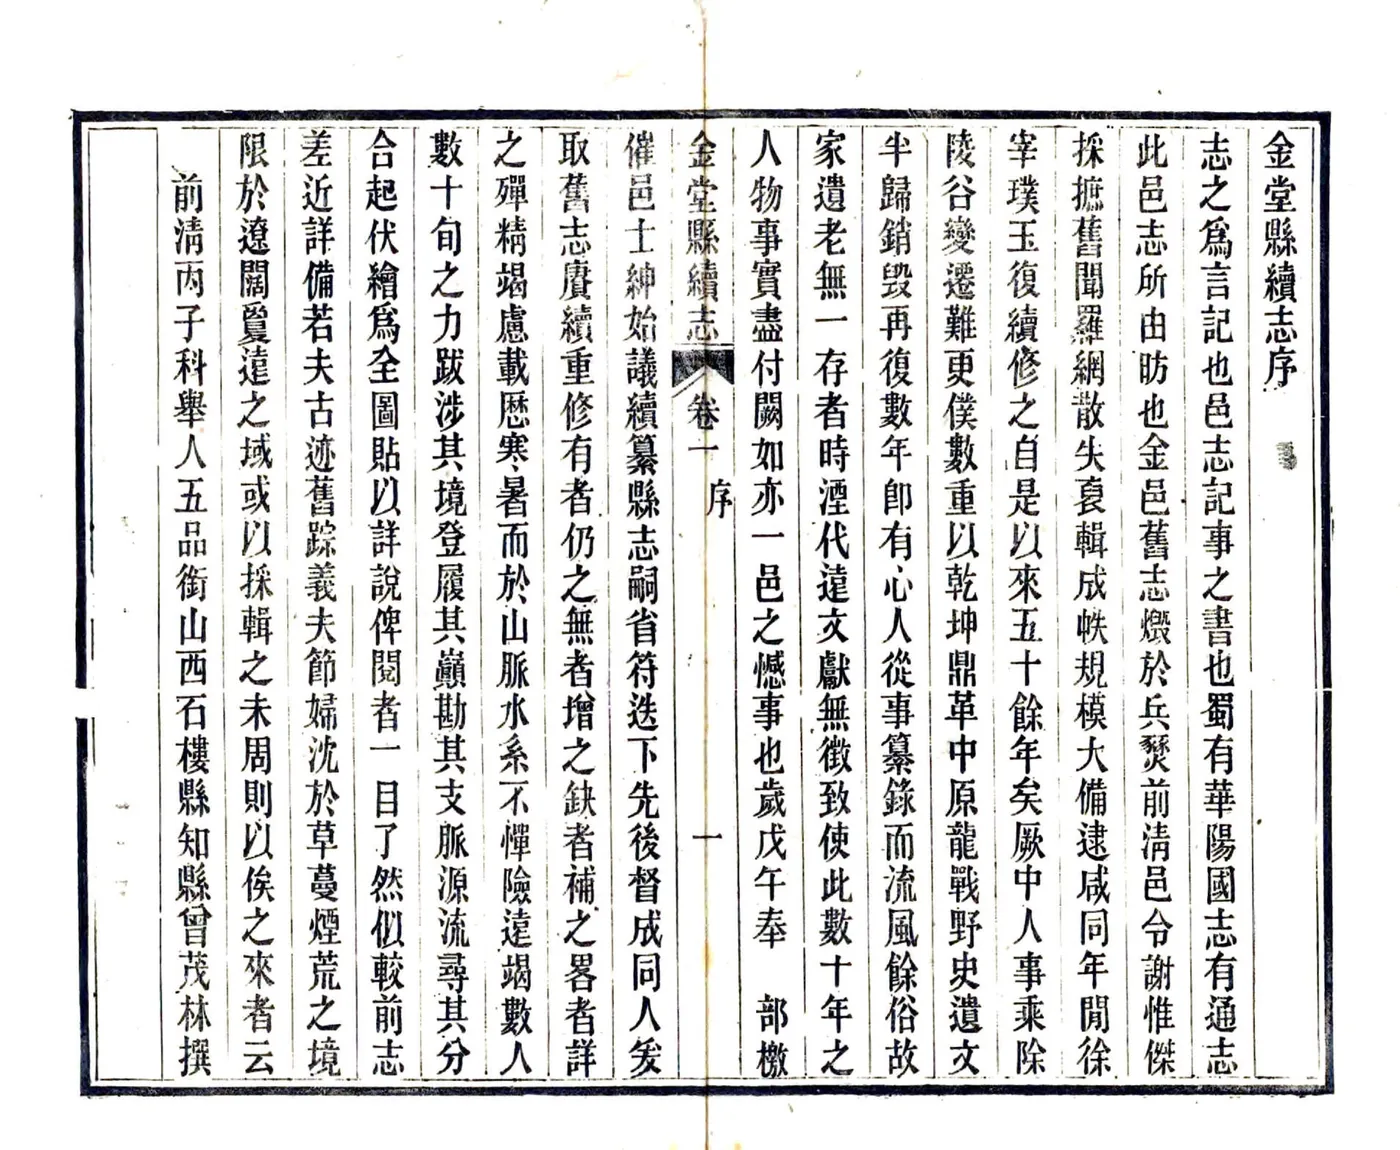 金堂縣續志序
志之爲言記也邑志記事之書也蜀有華陽國志有通志
此邑志所由昉也金邑舊志燬於兵燹前淸邑令謝惟傑
採摭舊聞羅網散失裒輯成帙規模大備逮咸同年閒徐
宰璞玉復續修之自是以來五十餘年矣厥中人事乘除
陵谷變遷難更僕數重以乾坤鼎革中原龍戰野史遺文
半歸銷毀再復數年卽有心人從事纂錄而流風餘俗故
家遺老無一存者時湮代遠文獻無徵致使此數十年之
人物事實盡付闕如亦一邑之憾事也歲戊午奉　部檄
金堂縣續志
卷一
序
一
催邑士紳始議續纂縣志嗣省符迭下先後督成同人爰
取舊志賡續重修有者仍之無者增之缺者補之畧者詳
之殫精竭慮載歷寒暑而於山脈水系不憚險遠竭數人
數十旬之力跋涉其境登履其巔勘其支脈源流尋其分
合起伏繪爲全圖貼以詳說俾閱者一目了然似較前志
差近詳備若夫古迹舊踪義夫節婦沈於草蔓煙荒之境
限於遼闊敻遠之域或以採輯之未周則以俟之來者云
前淸丙子科舉人五品銜山西石樓縣知縣曾茂林撰